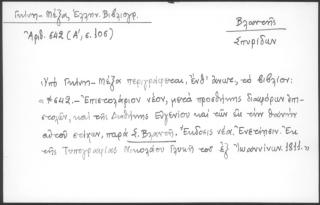 Γκίνη - Μέξα, Ἑλλην. Βιβλιογρ.
Ἀριθ. 642 (Α', σ. 105)
Βλαντῆς
Σπυρίδων
Ὑπὸ Γκίνη - Μέξα περιγράφεται, ἔνθ' ἄνωτ., τὸ βιβλίον:
«*642. - Ἐπιστολάριον νέον, μετὰ προσθήκης διαφόρων ἐπι-
στολῶν, καὶ τῆς Διαθήκης Εὐγενίου καὶ τῶν εἰς τὴν θανὴν
αὐτοῦ στίχων, παρὰ Σ. Βλαντῆ. Ἔκδοσις νέα. Ἐνετίησιν. Ἐκ
τῆς Τυπογραφίας Νικολάου Γλυκῆ τοῦ ἐξ Ἰωαννίνων 1811.»